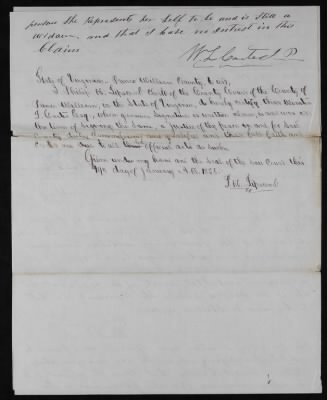 person she Represents her self to be and is still a
widow, and that I have no interest in this
Claim
State of Virginia Prince William County to wit,
I Philip D. Clerk of the County Court of the County of
Prince William, in the State of Virginia, do hereby certify that
Esq, whose genuine signature is written above, is and was at
the time of signing the same, a justice of the peace in and for said
County duly and qualified and that full faith and
are due to all his official acts as such
Given under my hand and the seal of the said Court this
day of January A.D.